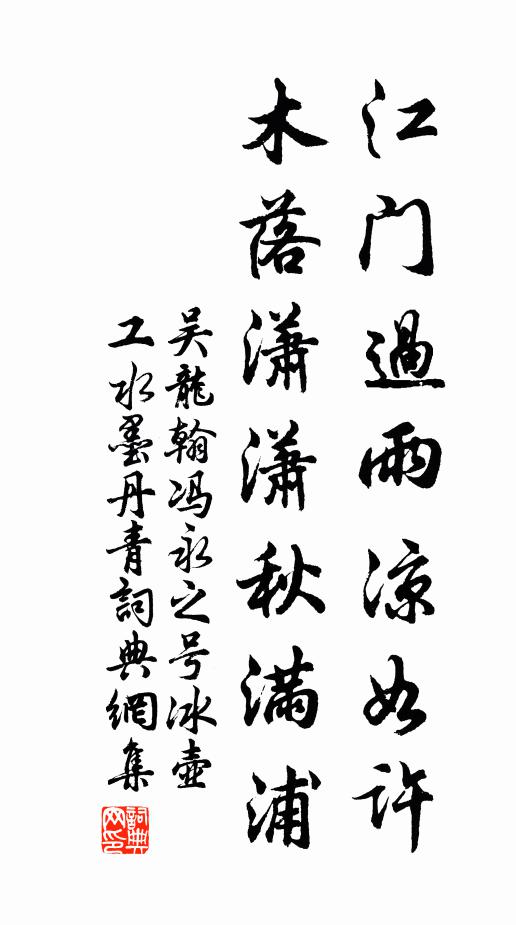 江门過雨凉如許
木落瀟瀟秋滿浦
吴龍翰冯永之号冰壶
工水墨丹青詞典網集
詞典网印